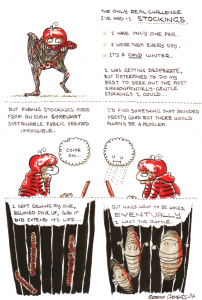 THE ONLY REAL CHALLENGE
I'VE HAD IS STOCKINGS.
• I HAVE ONLY ONE PAIR.
• I WEAR THEM EVERY DAY.
• IT'S A COLD WINTER.
I WAS GETTING DESPERATE,
BUT DETERMINED TO DO MY
BEST TO SEEK OUT THE MOST
ENVIRONMENTALLY-GENTLE
STOCKINGS I COULD...
BUT FINDING STOCKINGS MADE
FROM AN EVEN
SUSTAINABLE FABRIC SEEMED
IMPOSSIBLE.
I'D FIND SOMETHING THAT SOUNDED
PRETTY GOOD BUT THERE WOULD
ALWAYS BE A PROBLEM.
COME
ON...
I KEPT SEWING MY ONE,
BELOVED PAIR UP, AND IT
DID EXTEND ITS LIFE...
BUT
EVENTUALLY
I LOST THE BATTLE.